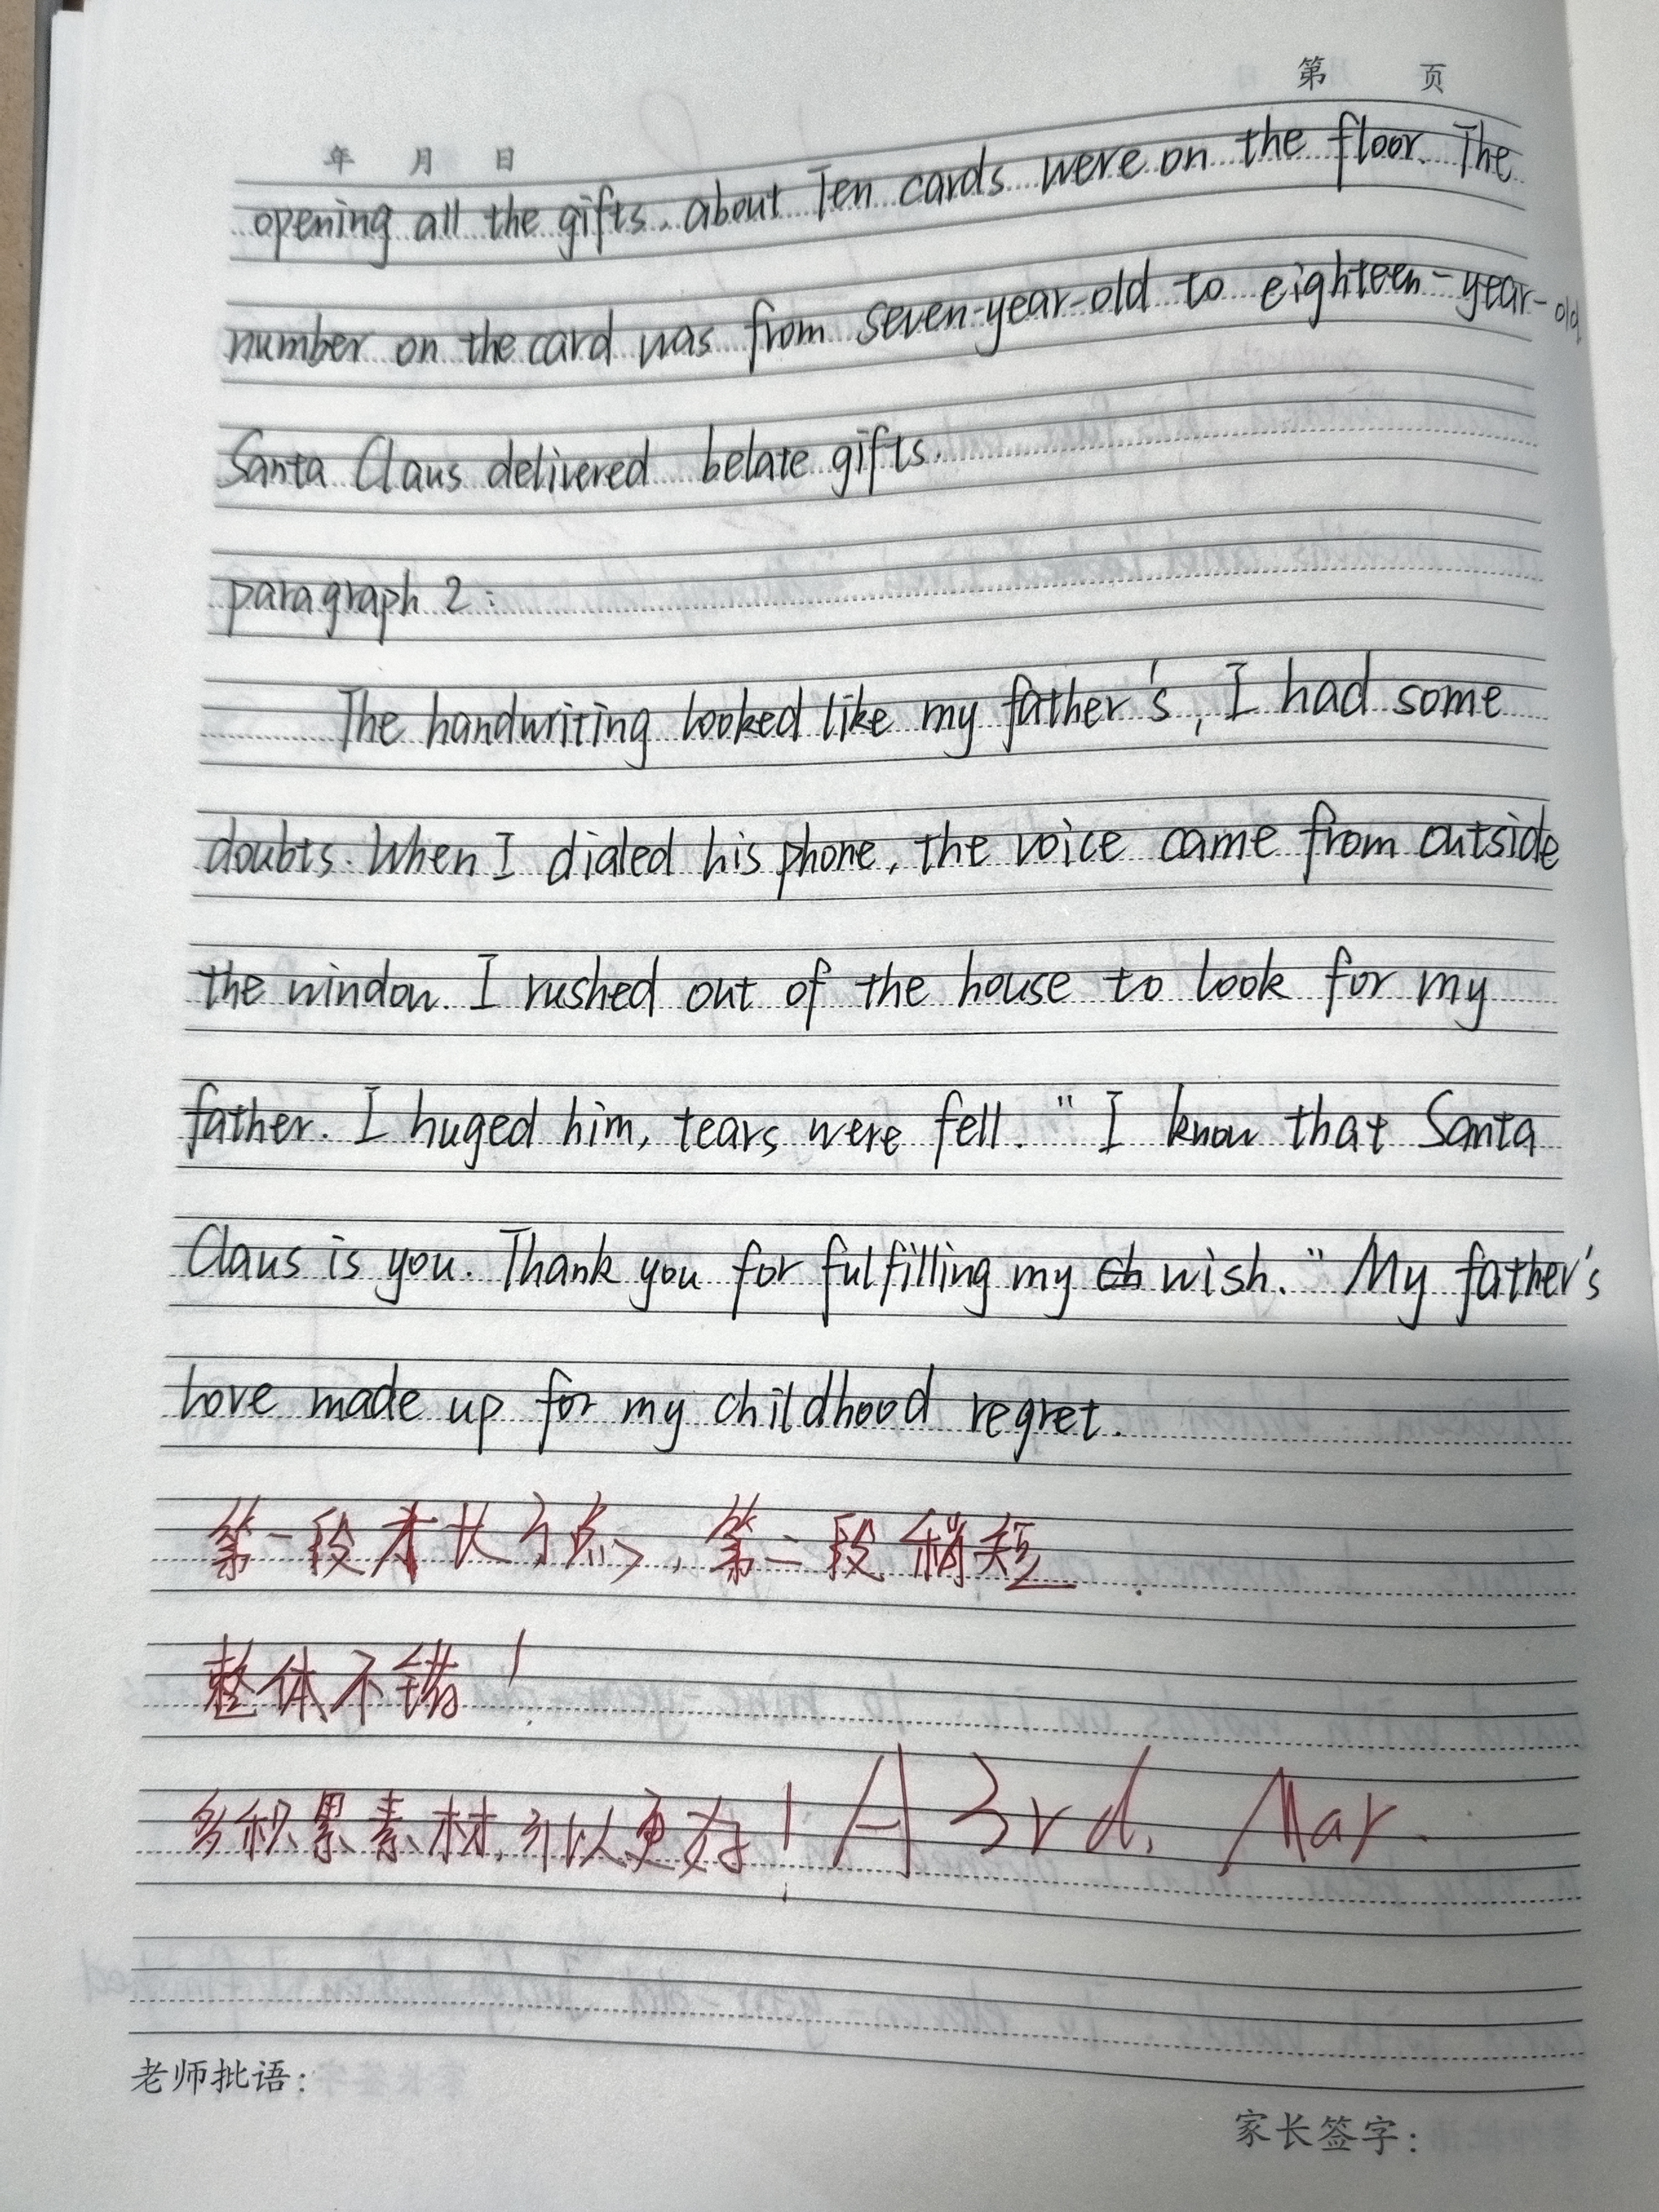 第 页
年 月 日
opening all the gifts, about Ten cards were on the floor. The
number on the card was from seven-year-old to eighteen-year-old
Santa Claus delivered belate gifts.
paragraph 2:
The handwriting looked like my father's, I had some
doubts. When I dialed his phone, the voice came from outside
the window. I rushed out of the house to look for my
father. I huged him, tears were fell. " I know that Santa
Claus is you. Thank you for fulfilling my ch wish." My father's
love made up for my childhood regret.
第一段太长了点,第二段稍短.
整体不错!
多积累素材,可以更好! A 3rd, Mar.
老师批语:
家长签字: